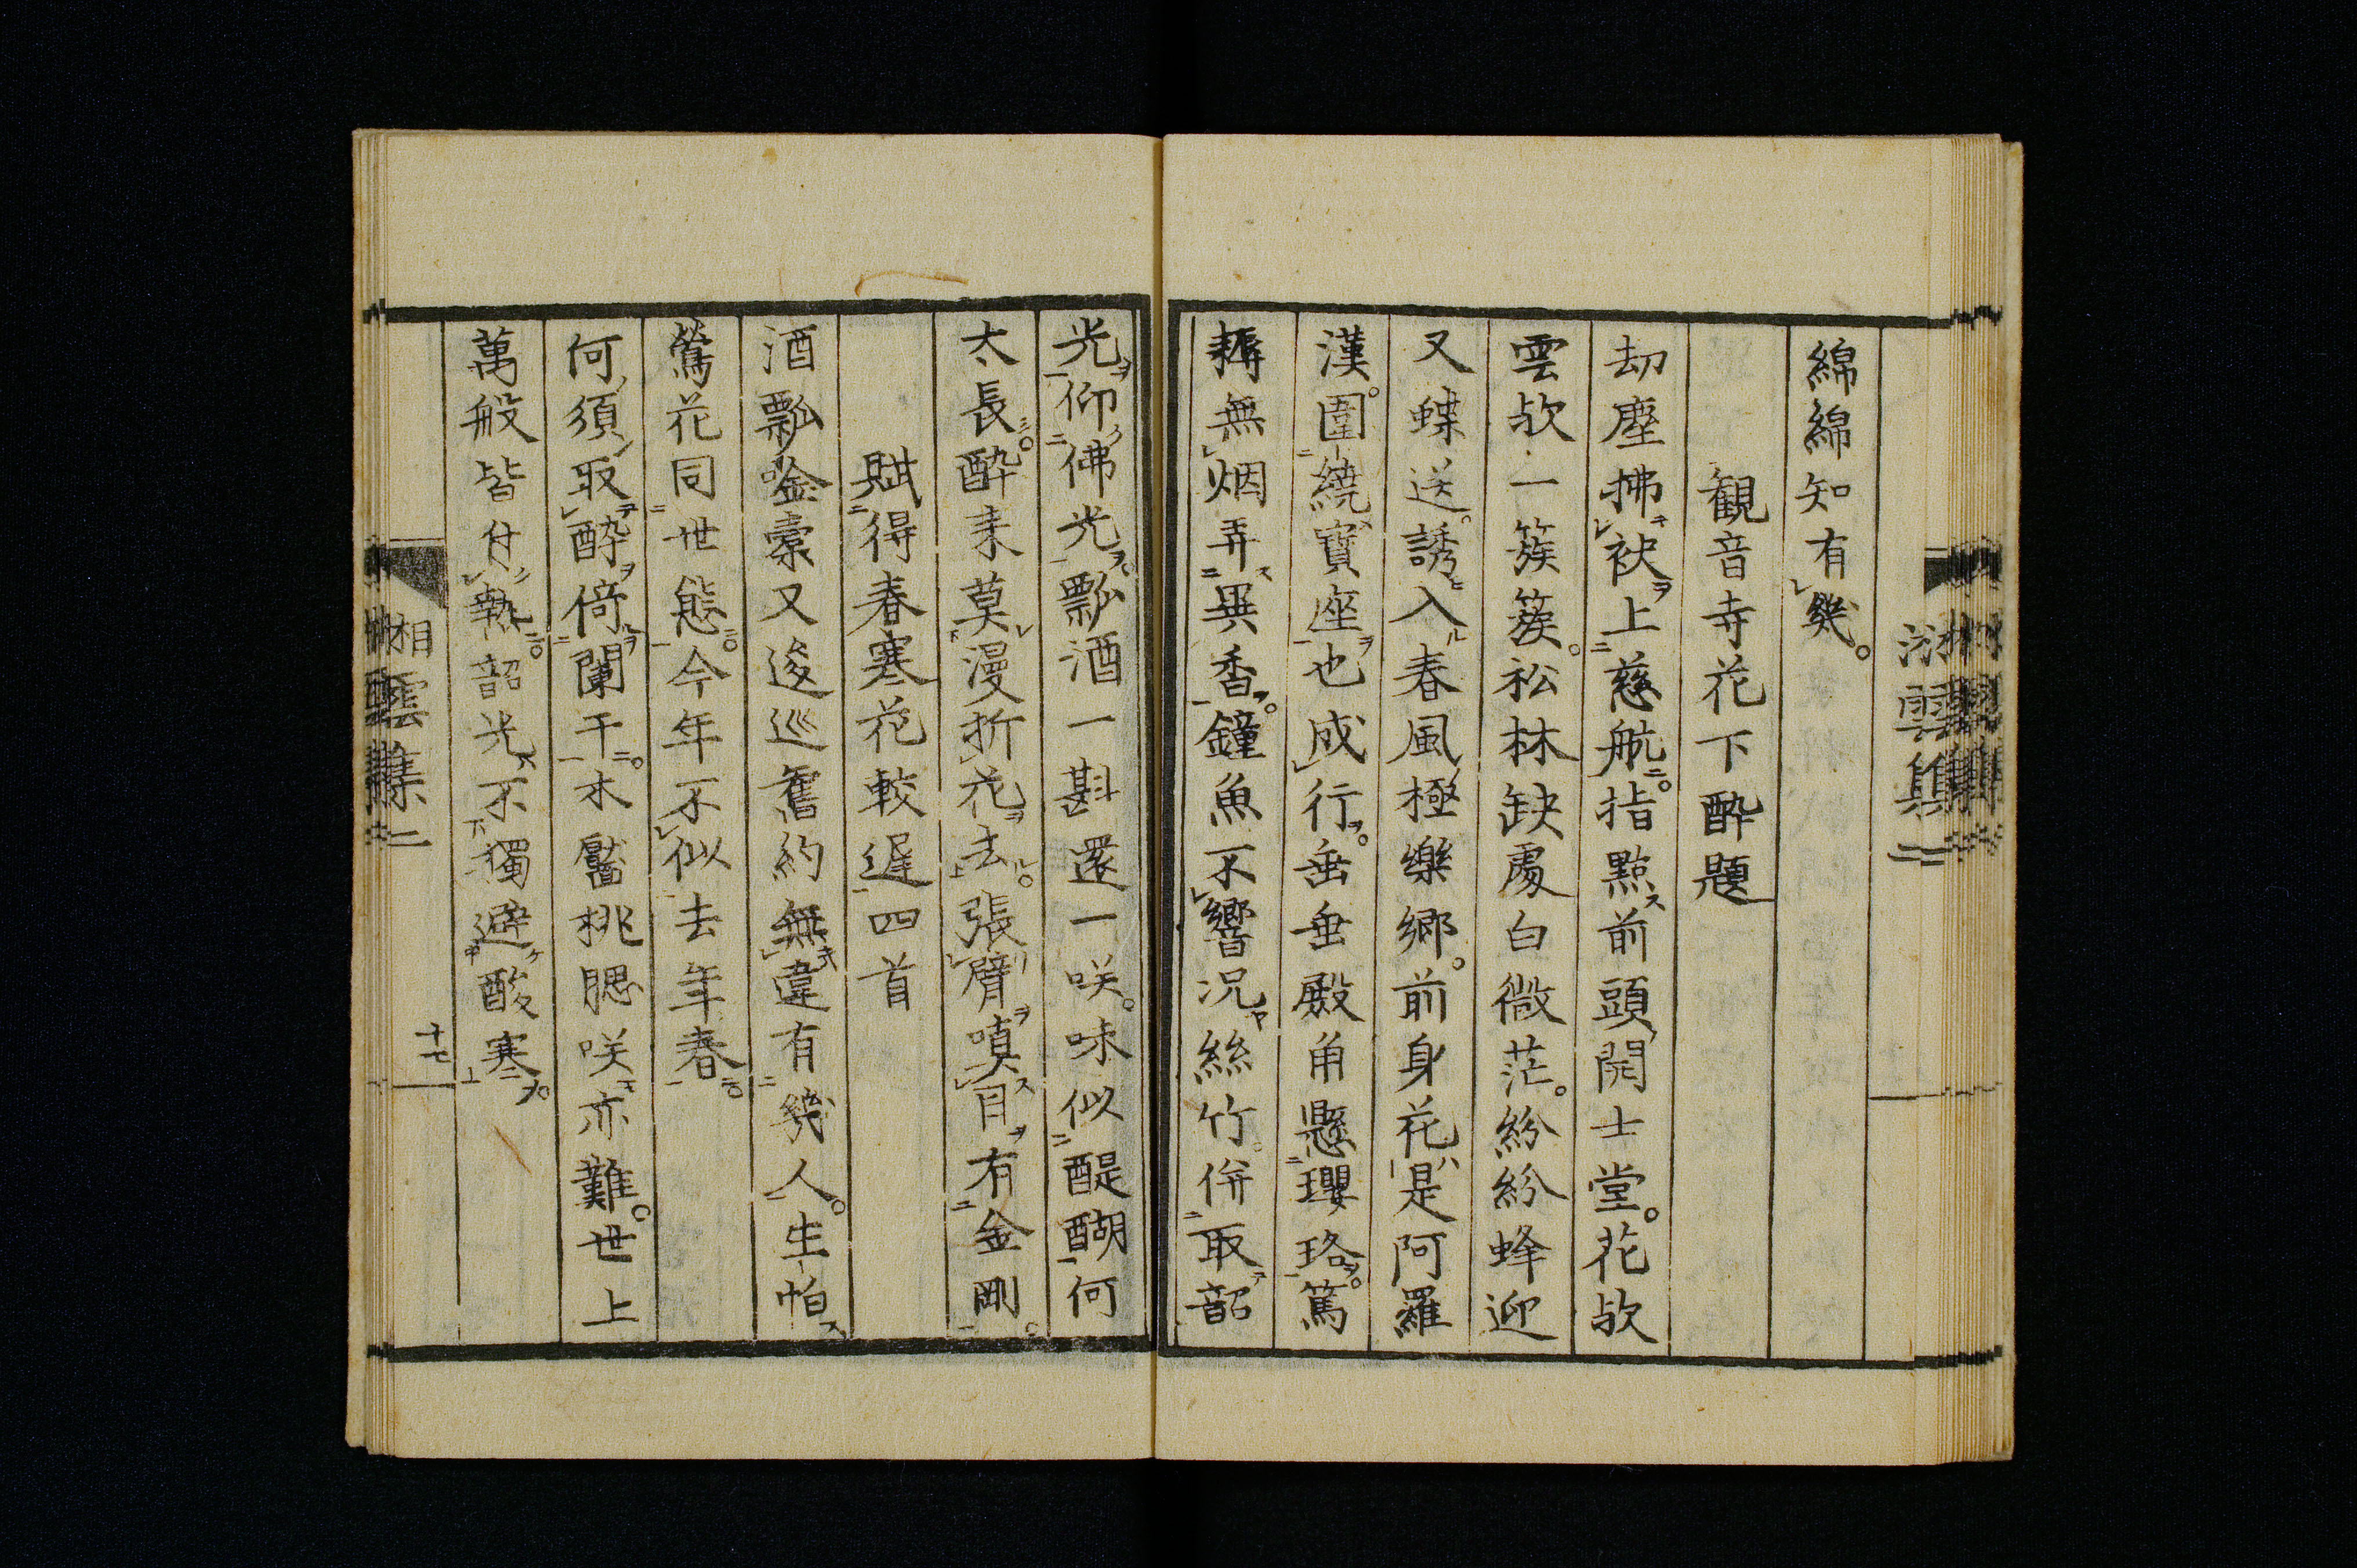 綿綿知有幾。
觀音寺花下醉題
劫塵拂袂上慈航。指點前頭開士堂。花欤
雲欤一簇簇。松林缺處白微茫。紛紛蜂迎
又蝶送。誘入春風極樂鄉。前身花是阿羅
漢。圍繞寶座也成行。垂垂殿角懸瓔珞。篤
耨無烟弄異香。鐘魚不響況絲竹。併取韶
光仰佛光。瓢酒一斟還一咲。味似醍醐何
太長。醉来莫漫折花去。張臂嗔目有金剛。
賦得春寒花較遲四首
酒瓢唫橐又逡巡舊約無違有幾人。生怕
鶯花同世態。今年不似去年春。
何須取醉倚闌干。木靨桃腮咲亦難。世上
萬般皆付熱。韶光不獨避酸寒。
湘雲集二
十七